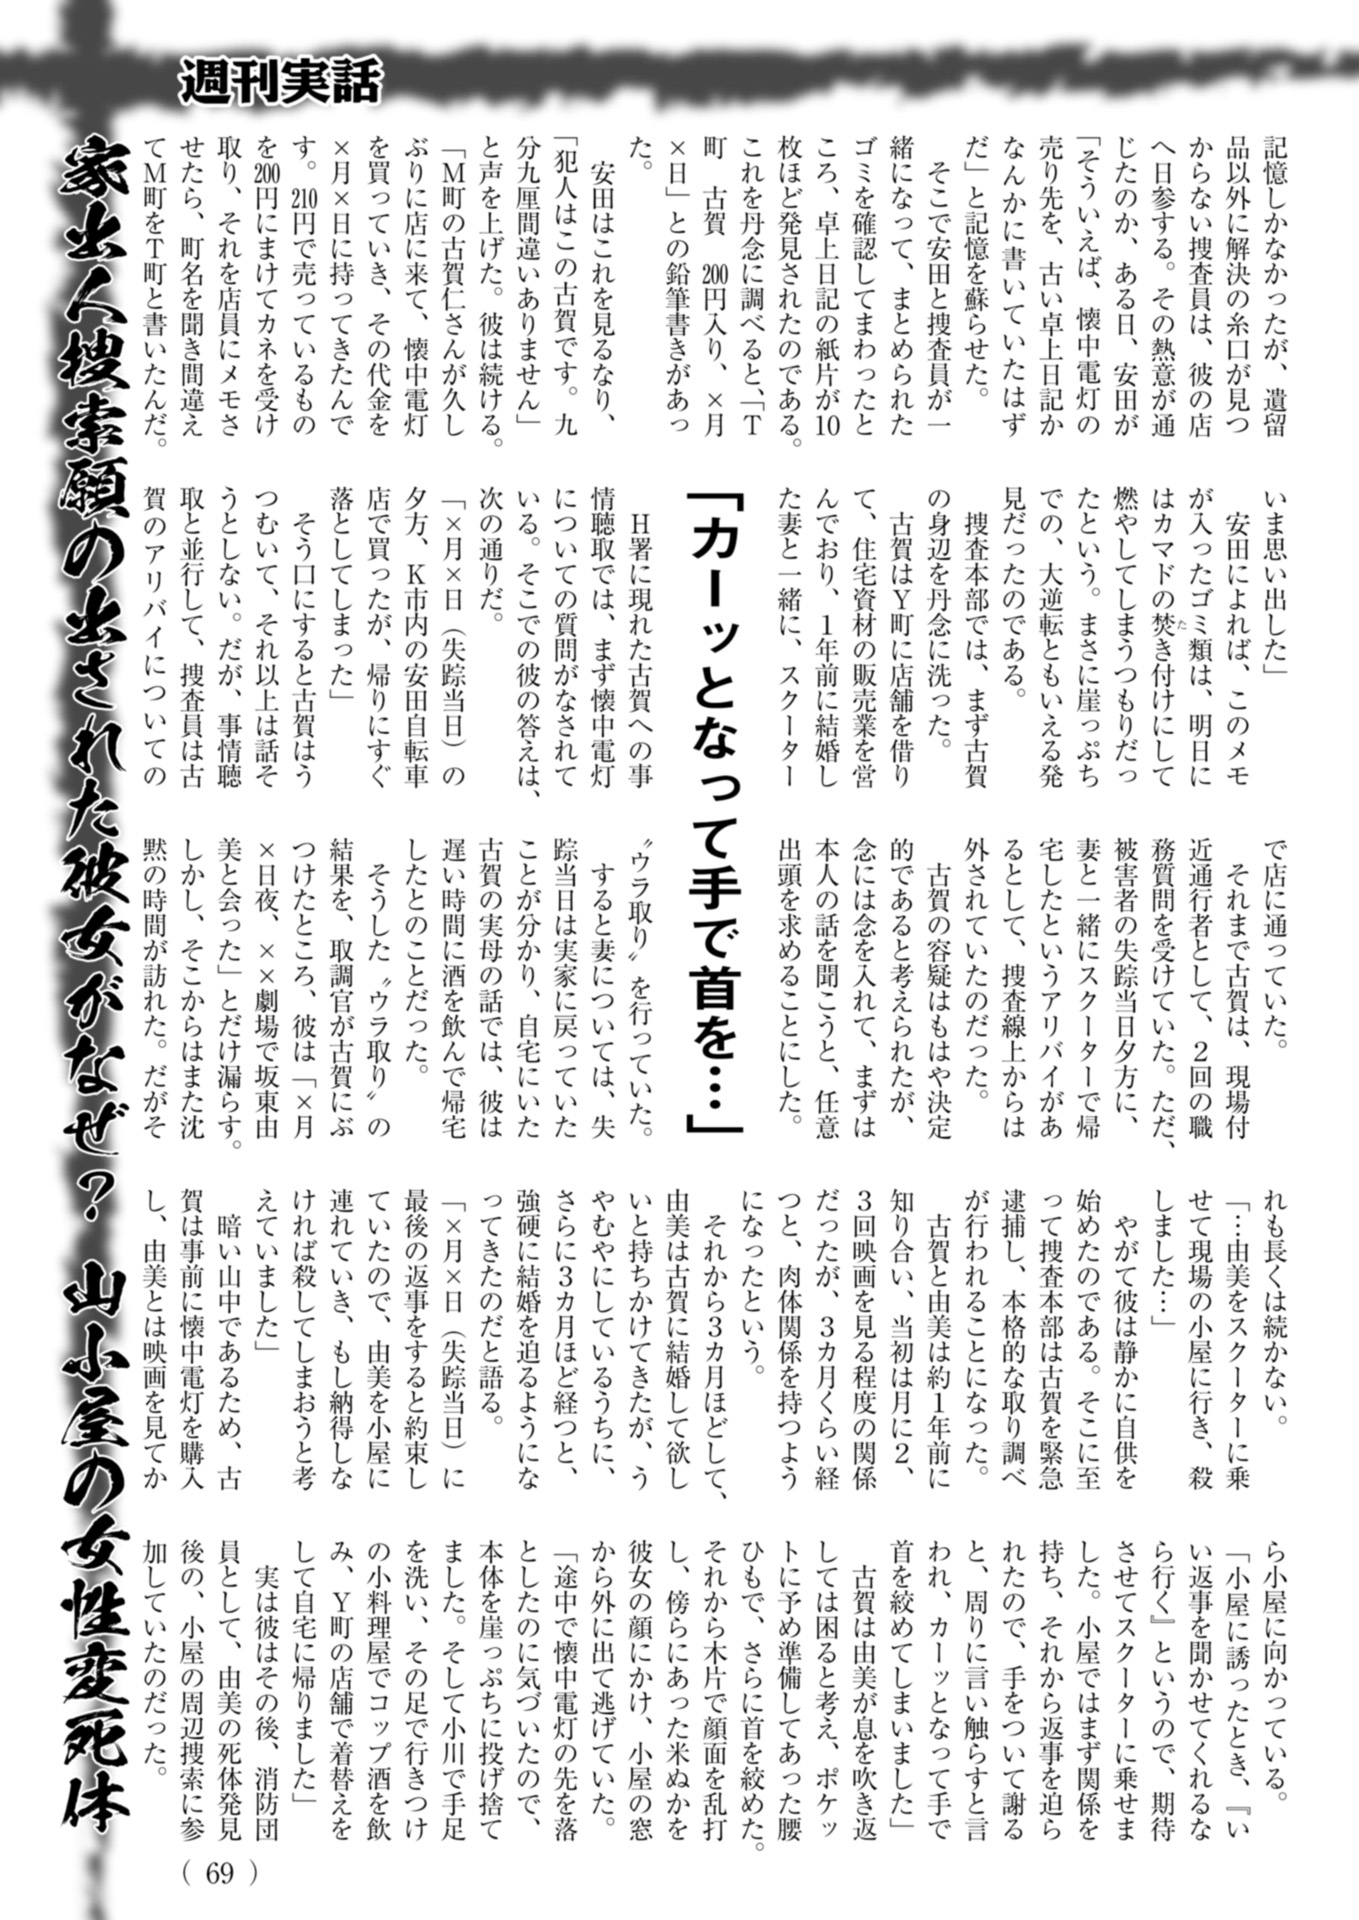 週刊実話
記憶しかなかったが、遺留
品以外に解決の糸口が見つ
からない捜査員は、彼の店
へ日参する。その熱意が通
じたのか、ある日、安田が
「そういえば、懐中電灯の
売り先を、古い卓上日記か
なんかに書いていたはず
だ」と記憶を蘇らせた。
そこで安田と捜査員が一
緒になって、まとめられた
ゴミを確認してまわったと
ころ、卓上日記の紙片が10
枚ほど発見されたのである。
これを丹念に調べると、「T
町　古賀　200円入り、×月
×日」との鉛筆書きがあっ
た。
安田はこれを見るなり、
「犯人はこの古賀です。九
分九厘間違いありません」
と声を上げた。彼は続ける。
「M町の古賀仁さんが久し
ぶりに店に来て、懐中電灯
を買っていき、その代金を
×月×日に持ってきたんで
す。210円で売っているもの
を200円にまけてカネを受け
取り、それを店員にメモさ
せたら、町名を聞き間違え
てM町をT町と書いたんだ。
いま思い出した」
安田によれば、このメモ
が入ったゴミ類は、明日に
はカマドの焚き付けにして
燃やしてしまうつもりだっ
たという。まさに崖っぷち
での、大逆転ともいえる発
見だったのである。
捜査本部では、まず古賀
の身辺を丹念に洗った。
古賀はY町に店舗を借り
て、住宅資材の販売業を営
んでおり、1年前に結婚し
た妻と一緒に、スクーター
「カーッとなって手で首を…」
H署に現れた古賀への事
情聴取では、まず懐中電灯
についての質問がなされて
いる。そこでの彼の答えは、
次の通りだ。
「×月×日（失踪当日）の
夕方、K市内の安田自転車
店で買ったが、帰りにすぐ
落としてしまった」
そう口にすると古賀はう
つむいて、それ以上は話そ
うとしない。だが、事情聴
取と並行して、捜査員は古
賀のアリバイについての
で店に通っていた。
それまで古賀は、現場付
近通行者として、2回の職
務質問を受けていた。ただ、
被害者の失踪当日夕方に、
妻と一緒にスクーターで帰
宅したというアリバイがあ
るとして、捜査線上からは
外されていたのだった。
古賀の容疑はもはや決定
的であると考えられたが、
念には念を入れて、まずは
本人の話を聞こうと、任意
出頭を求めることにした。
〝ウラ取り〟を行っていた。
すると妻については、失
踪当日は実家に戻っていた
ことが分かり、自宅にいた
古賀の実母の話では、彼は
遅い時間に酒を飲んで帰宅
したとのことだった。
そうした〝ウラ取り〟の
結果を、取調官が古賀にぶ
つけたところ、彼は「×月
×日夜、××劇場で坂東由
美と会った」とだけ漏らす。
しかし、そこからはまた沈
黙の時間が訪れた。だがそ
れも長くは続かない。
「…由美をスクーターに乗
せて現場の小屋に行き、殺
しました…」
やがて彼は静かに自供を
始めたのである。そこに至
って捜査本部は古賀を緊急
逮捕し、本格的な取り調べ
が行われることになった。
古賀と由美は約1年前に
知り合い、当初は月に2、
3回映画を見る程度の関係
だったが、3カ月くらい経
つと、肉体関係を持つよう
になったという。
それから3カ月ほどして、
由美は古賀に結婚して欲し
いと持ちかけてきたが、う
やむやにしているうちに、
さらに3カ月ほど経つと、
強硬に結婚を迫るようにな
ってきたのだと語る。
「×月×日（失踪当日）に
最後の返事をすると約束し
ていたので、由美を小屋に
連れていき、もし納得しな
ければ殺してしまおうと考
えていました」
暗い山中であるため、古
賀は事前に懐中電灯を購入
し、由美とは映画を見てか
ら小屋に向かっている。
「小屋に誘ったとき、『い
い返事を聞かせてくれるな
ら行く』というので、期待
させてスクーターに乗せま
した。小屋ではまず関係を
持ち、それから返事を迫ら
れたので、手をついて謝る
と、周りに言い触らすと言
われ、カーッとなって手で
首を絞めてしまいました」
古賀は由美が息を吹き返
しては困ると考え、ポケッ
トに予め準備してあった腰
ひもで、さらに首を絞めた。
それから木片で顔面を乱打
し、傍らにあった米ぬかを
彼女の顔にかけ、小屋の窓
から外に出て逃げていた。
「途中で懐中電灯の先を落
としたのに気づいたので、
本体を崖っぷちに投げ捨て
ました。そして小川で手足
を洗い、その足で行きつけ
の小料理屋でコップ酒を飲
み、Y町の店舗で着替えを
して自宅に帰りました」
実は彼はその後、消防団
員として、由美の死体発見
後の、小屋の周辺捜索に参
加していたのだった。
家出人捜索願の出された彼女がなぜ？ 山小屋の女性変死体
（69）